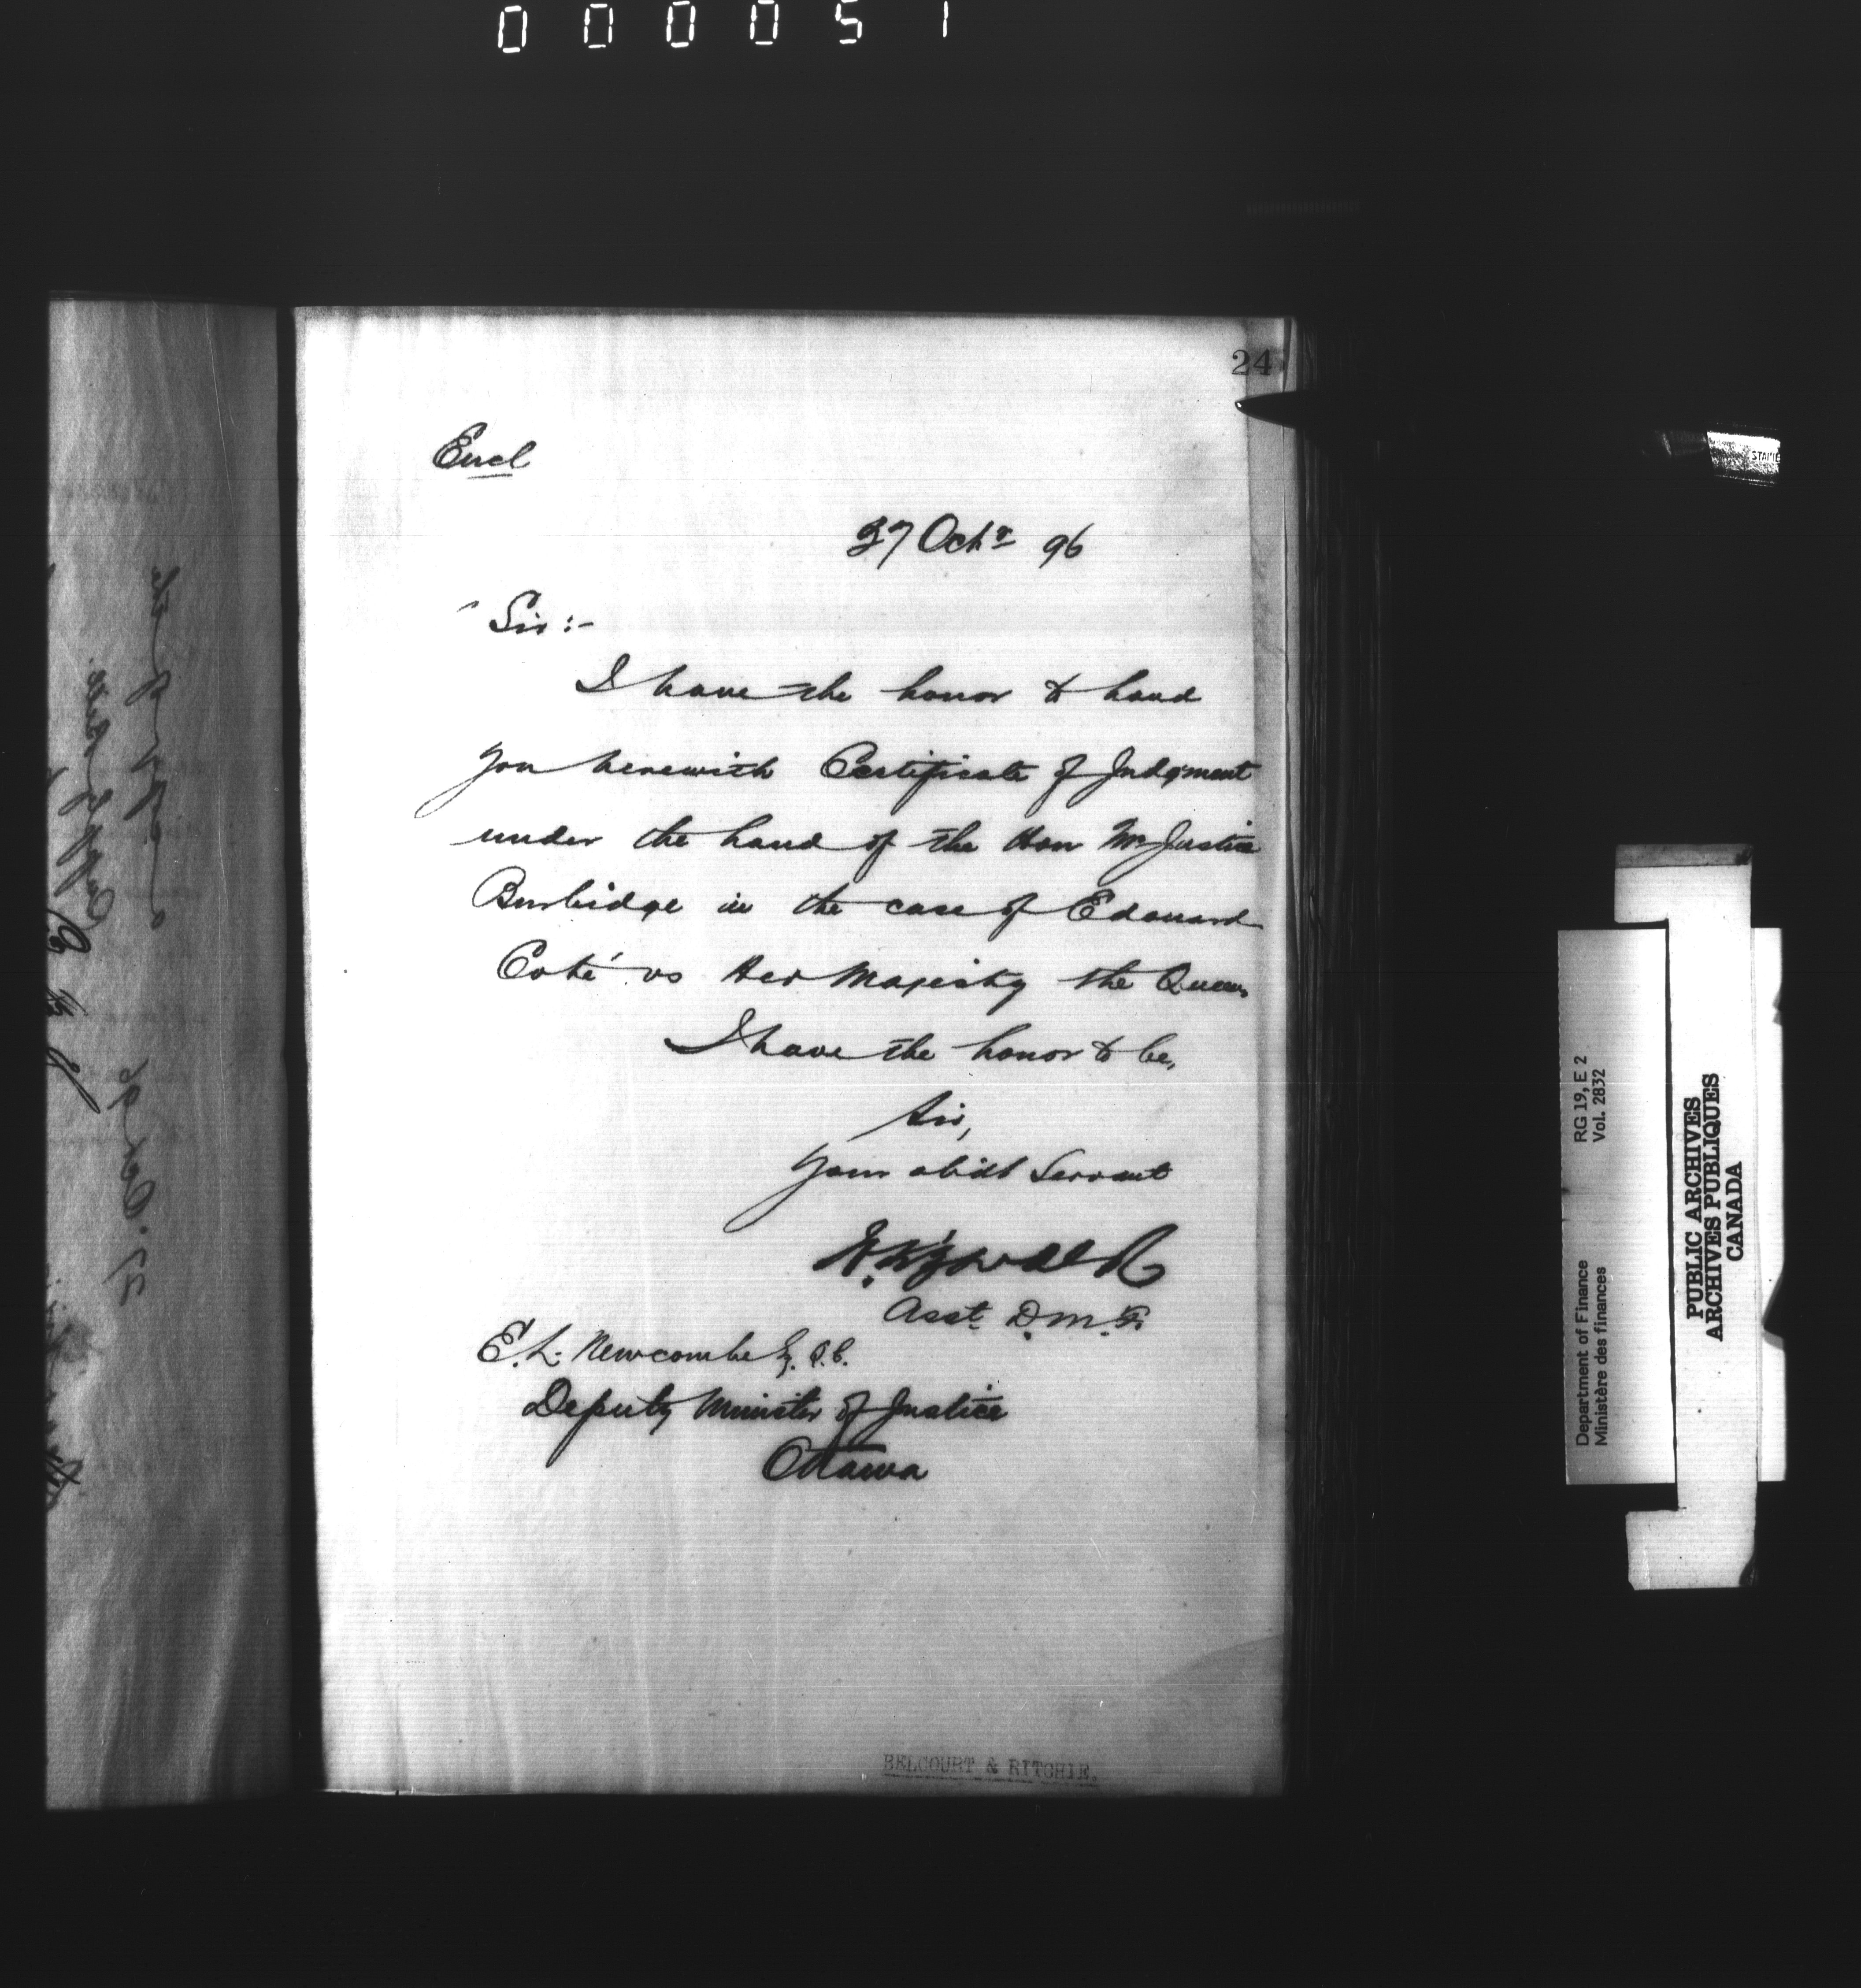 000051
24
Encl
27 Octr 96
Sir:-
I have the honor to hand
you herewith Certificate of Judgment
under the hand of the Hon Mr Justice
Burbidge in the case of Edouard
Coté vs Her Majesty the Queen
I have the honor to be,
Sir,
Your obidt Servant
Asst. D.M.F.
E.L. Newcombe Esq. Q.C.
Deputy Minister of Justice
Ottawa
BELCOURT & RITCHIE.
Department of Finance RG 19, E 2
Ministère des finances Vol. 2832
PUBLIC ARCHIVES
ARCHIVES PUBLIQUES
CANADA